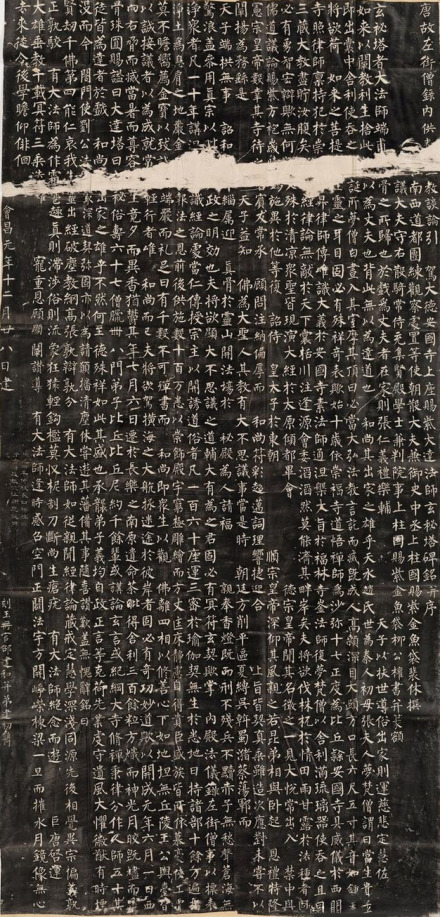 唐故左街僧錄內供
教談論引 駕大德安國寺上座賜紫大達法師玄秘塔碑銘并序
南西道都團練觀察處置等使朝散大夫兼御史中丞上柱國賜紫金魚袋裴休撰
議大夫守右散騎常侍充集賢殿學士兼判院事上柱國賜紫金魚袋柳公權書并篆額
玄秘塔者大法師端甫
骨之所歸也於戲為丈夫者在家則張仁義禮樂輔 天子以扶世導俗出家則運慈悲定慧佐
如來以闡教利生捨此
以為丈夫也背此無以為達道也 和尚其出家之雄乎天水趙氏世為秦人初母張夫人夢梵僧謂曰當生貴子
即出囊中舍利使吞之
誕所夢僧白晝入其室摩其頂曰必當大弘法教言訖而滅既成人高顙深目大頤方口長六尺五寸其音如鐘夫
將欲荷 如來之菩提
生靈之耳目固必有殊祥奇表歟始十歲依崇福寺道悟禪師為沙彌十七正度為比丘隸安國寺具威儀於西明
寺照律師禀持犯於崇
昇律師傳唯識大義於安國寺素法師通涅槃大旨於福林寺崟法師復夢梵僧以舍利滿琉璃器使吞之且曰
三藏大教盡貯汝腹矣
經律論無敵於天下囊括川注逢源會委滔滔然莫能濟其畔岸矣夫將欲伐株杌於情田雨甘露於法種者固
必有勇智宏辯歟無何
殊於清涼眾聖皆現演大經於太原傾都畢會 德宗皇帝聞其名徵之一見大悅常出入 禁中與
儒道議論賜紫方袍歲
施異於他等復 詔侍 皇太子於東朝 順宗皇帝深仰其風親之若昆弟相與臥起 恩禮特隆
憲宗皇帝數幸其寺待
若賓友常承 顧問注納偏厚而 和尚符彩超邁詞理響捷迎合 上旨皆契真乘雖造次應對未嘗不以
闡揚為務繇是
天子益知 佛為大聖人其教有大不思議事當是時 朝廷方削平區夏縛吳斡蜀瀦蔡蕩鄆而
天子端拱無事 詔和
緇屬迎 真骨於靈山開法場於 秘殿為人請福 親奉香燈既而刑不殘兵不黷赤子無愁聲蒼海無
驚浪蓋參用真宗以毗
政之明效也夫將欲顯大不思議之道輔大有為之君固必有冥符玄契歟掌 內殿法儀錄左街僧事以標表
淨眾者凡一十年講涅
識經論處當仁傳授宗主以開誘道俗者凡一百六十座運三密於瑜伽契無生於悉地日持諸部十餘萬遍指
淨土為息肩之地嚴金
報法之恩前後供施數十百萬悉以崇飾殿宇窮極雕繪而方丈匡床靜慮自得貴臣盛族皆所依慕豪俠工賈
莫不瞻嚮薦金寶以致誠
端嚴而禮足日有千數不可殫書而 和尚即眾生以觀 佛離四相以修善心下如地坦無丘陵王公輿臺皆
以誠接議者以為成就常
輕行者唯 和尚而已夫將欲駕橫海之大航拯迷途於彼岸者固必有奇功妙道歟以開成元年六月一日西
向右脅而滅當暑而尊容
生竟夕而異香猶鬱其年七月六日遷於長樂之南原遺命荼毗得舍利三百餘粒方熾而神光月皎既燼而靈
骨珠圓賜謚曰大達塔曰
秘俗壽六十七僧臘卌八門弟子比丘比丘尼約千餘輩或講論玄言或紀綱大寺修禪秉律分作人師五十其
徒皆為達者於戲 和尚
出家之雄乎不然何至德殊祥如此其盛也承襲弟子義均自政正言等克荷先業虔守遺風大懼徽猷有時堙
沒而今閤門使劉公法
最深道契彌固亦以為請願播清塵休嘗遊其藩備其事隨喜讚歎蓋無愧辭銘曰
賢劫千佛第四能仁哀我生
出經破塵教網高張孰辯孰分 有大法師如從親聞經律論藏戒定慧學深淺同源先後相覺異宗偏義孰
正孰駁 有大法師為作霜
趣真則滯涉俗則流象狂猿輕鉤檻莫收柅制刀斷尚生瘡疣 有大法師絕念而遊 巨唐啟運
大雄垂教千載冥符三乘迭
寵重恩顧顯闡讚導 有大法師逢時感召空門正闢法宇方開崢嶸棟梁一旦而摧水月鏡像無心
去來徒令後學瞻仰徘徊
會昌元年十二月廿八日建
刻玉冊官邵建和并弟建初鐫